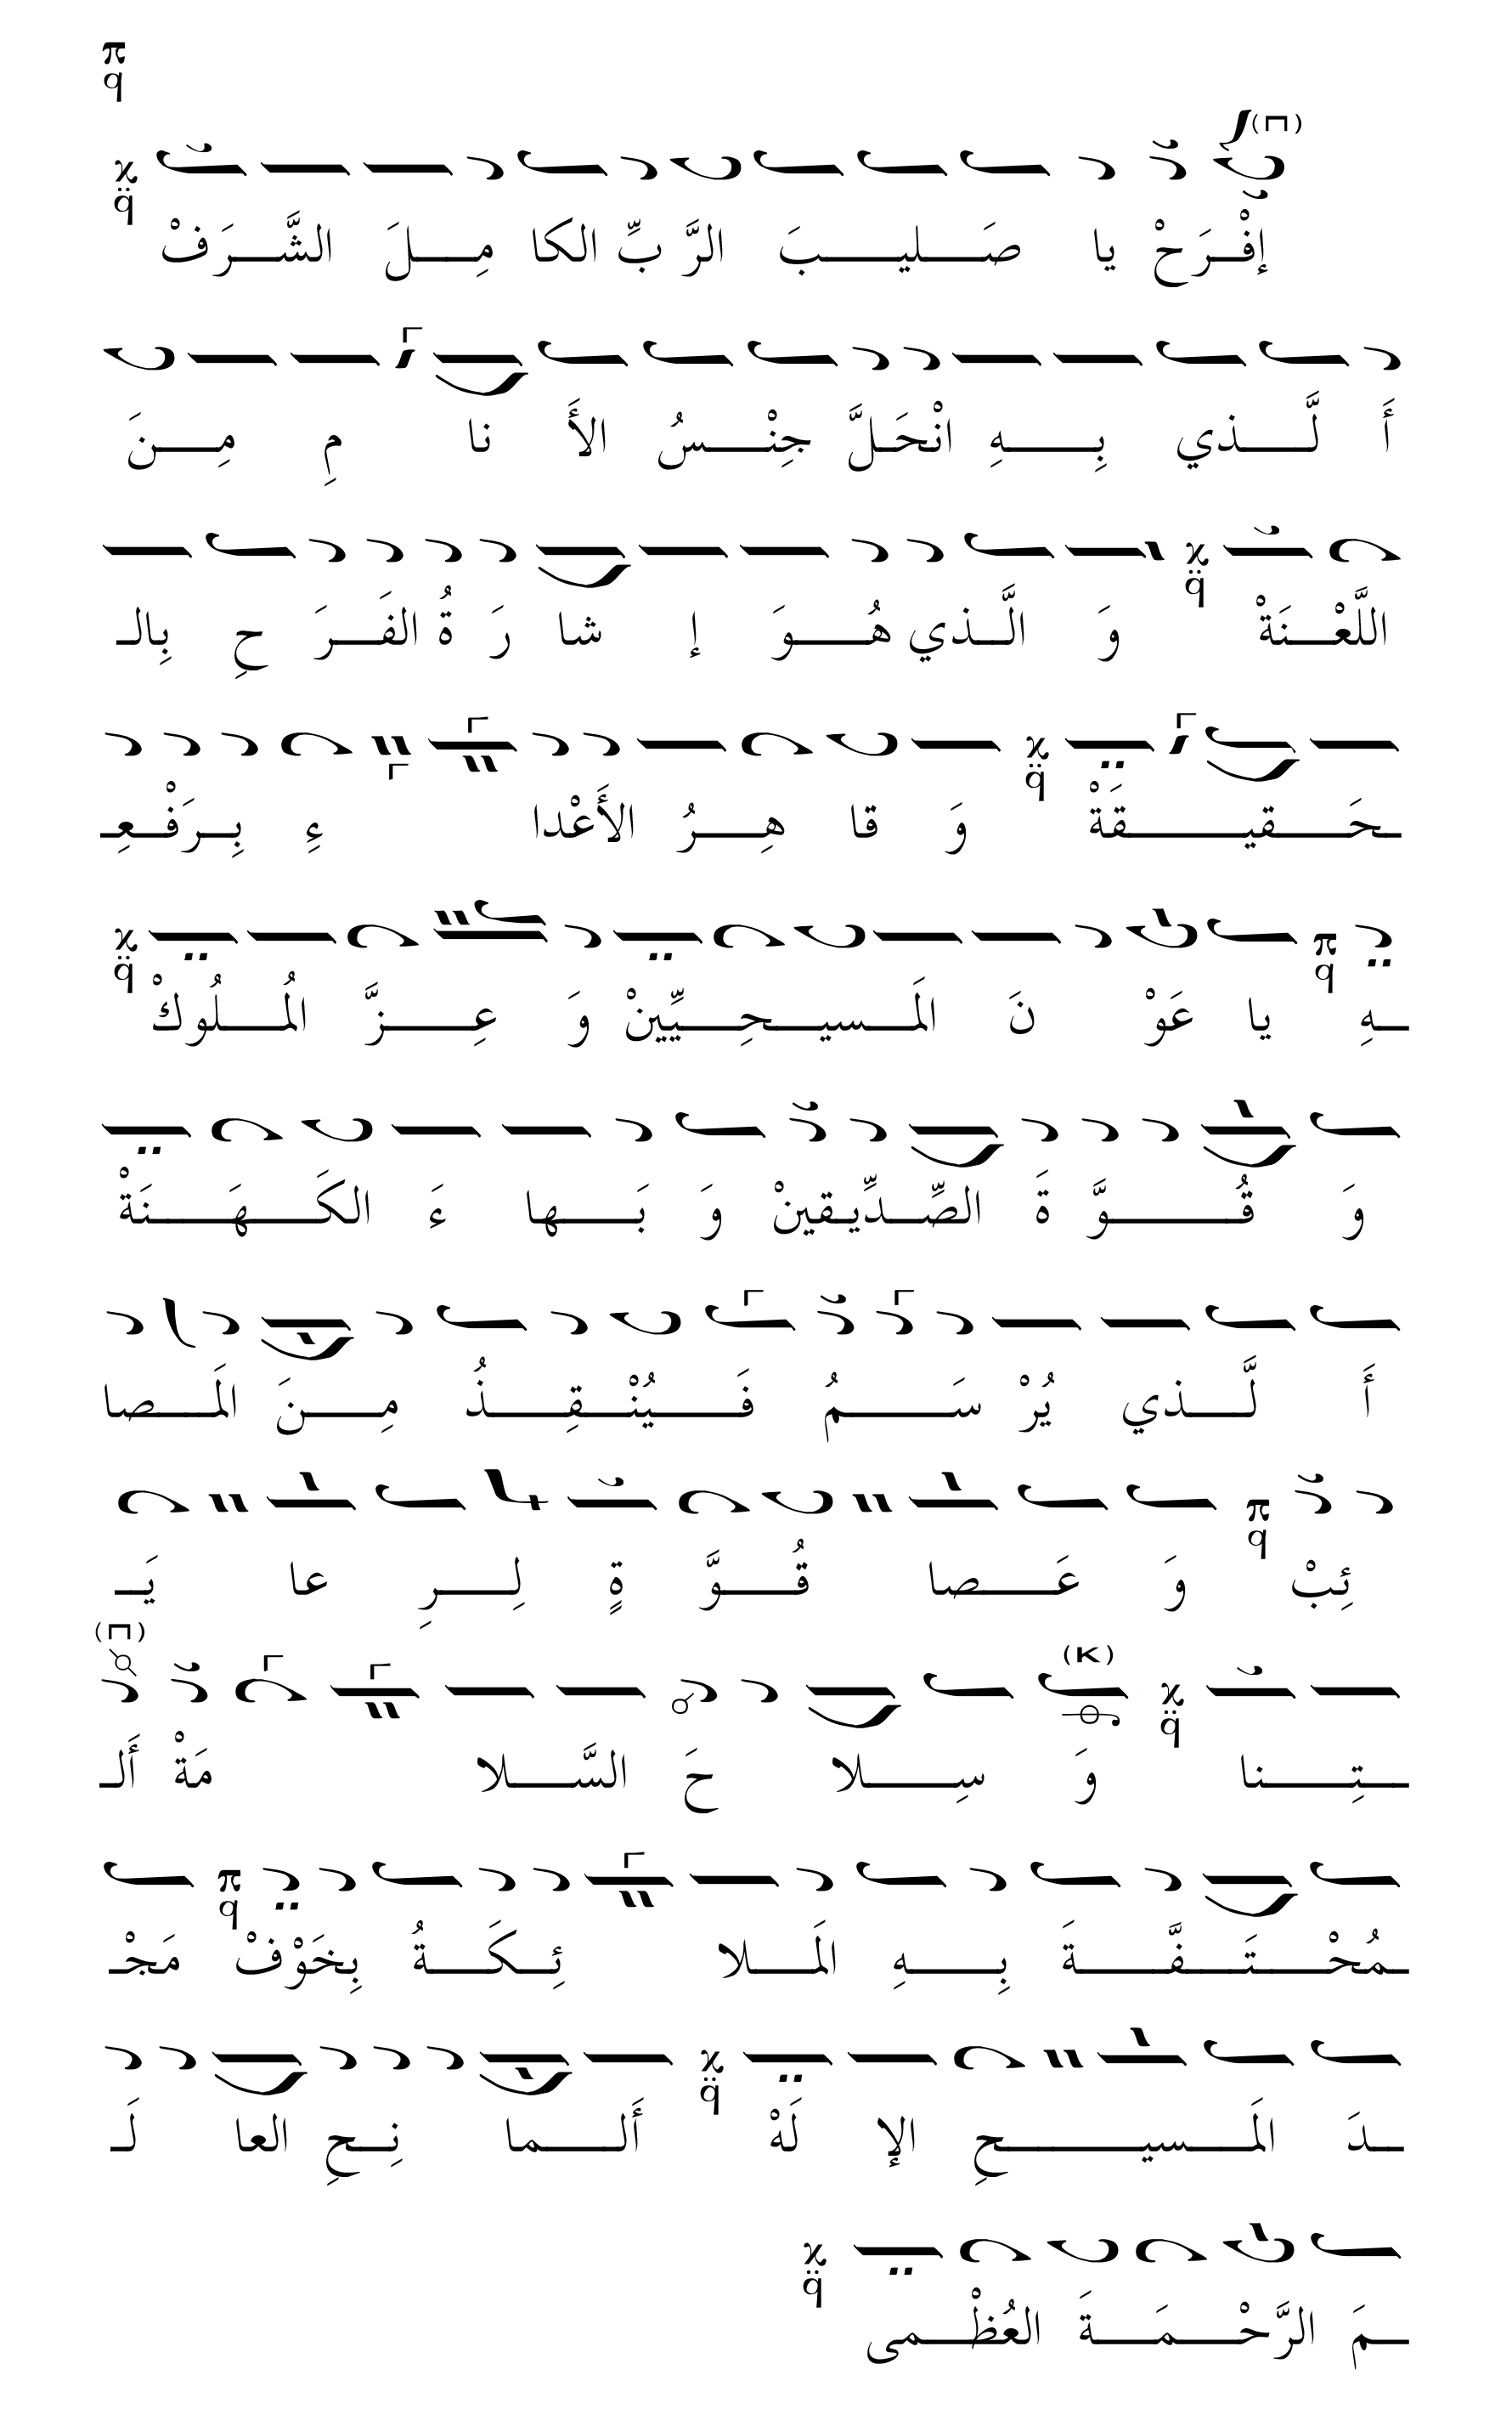 π
q
(Π)
إفْرَحْ يا صَليبَ الرَّبِّ الكامِلَ الشَّرَفْ
أَلَّذي بِهِ انْحَلَّ جِنْسُ الأَنامِ مِنَ
اللَّعْنَةْ وَالَّذي هُوَ إشارَةُ الفَرَحِ بِالـ
ـحَقيقَةْ وَقاهِرُ الأَعْداءِ بِرَفْعِـ
ـهِ يا عَوْنَ المَسيحِيِّينْ وَعِزَّ المُلُوكْ
وَقُوَّةَ الصِّدِّيقينْ وَبَهاءَ الكَهَنَةْ
أَلَّذي يُرْسَمُ فَيُنْقِذُ مِنَ المَصا
ئِبْ وَعَصا قُوَّةٍ لِرِعايَـ
(Π) (K)
ـتِنا وَسِلاحَ السَّلامَةْ أَلـ
ـمُحْتَفَّةَ بِهِ المَلائِكَةُ بِخَوْفْ مَجْـ
ـدَ المَسيحِ الإلَهْ أَلمانِحِ العالَـ
ـمَ الرَّحْمَةَ العُظْمى